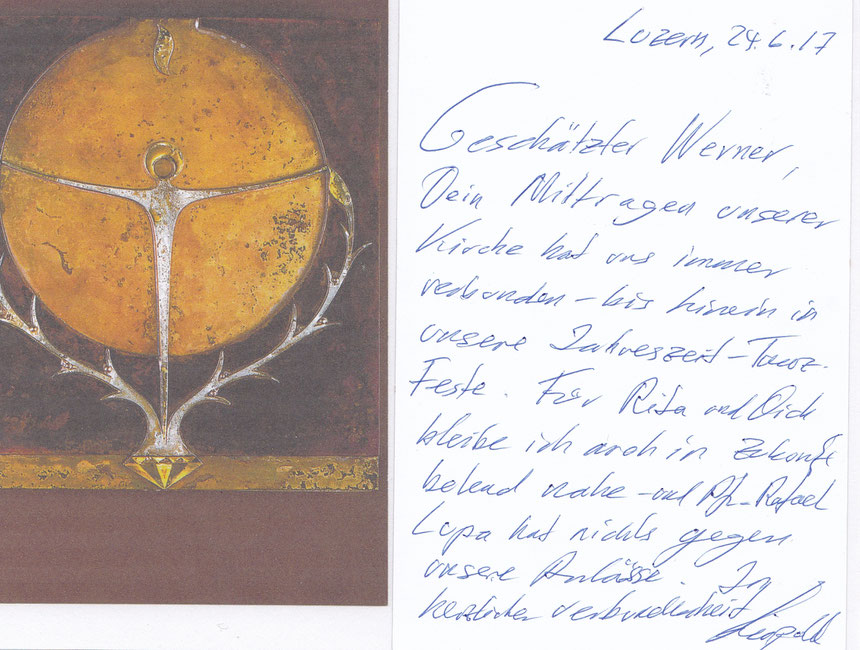 Luzern, 24.6.17
Geschätzter Werner,
Dein Mittragen unserer
Kirche hat uns immer
verbunden – bis hinein in
unsere Jahreszeit-Tanz-
Feste. Für Rita und Dich
bleibe ich auch in Zukunft
betend nahe – und Pfr. Rafael
Lupa hat nichts gegen
unsere Anlässe. In
herzlicher Verbundenheit
Leopold